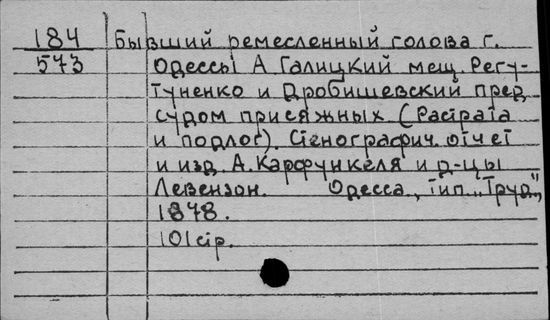 184 Бывший ремесленный голова г.
573 Одессы А. Галицкий мещ. Регу-
туненко и Дробишевский пред
судом присяжных (Растрата
и подлог). Стенографич. отчет
и изд. А. Карфункеля и д-цы
Левензон. Одесса, тип. „Труд",
1878.
101 стр.